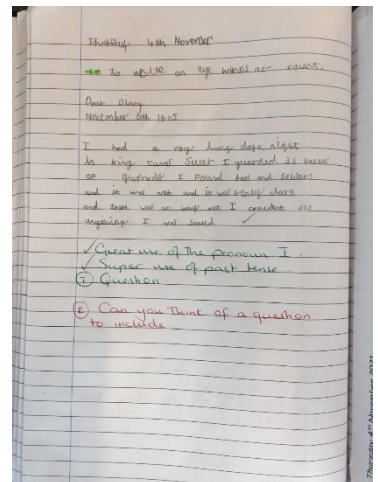 Thursday 4th November
to write an eye witness ac- count.
Dear Diary
November 5th 1605
I had a very long dark night
in king I guarded 36 
of I found bats and spiders
and it was wet and it was really dark
and there was no way out I see
I was scared
Great use of The pronoun I.
Super use of past tense
I Question
E Can you Think of a question
to include
Thursday 4th November 2021